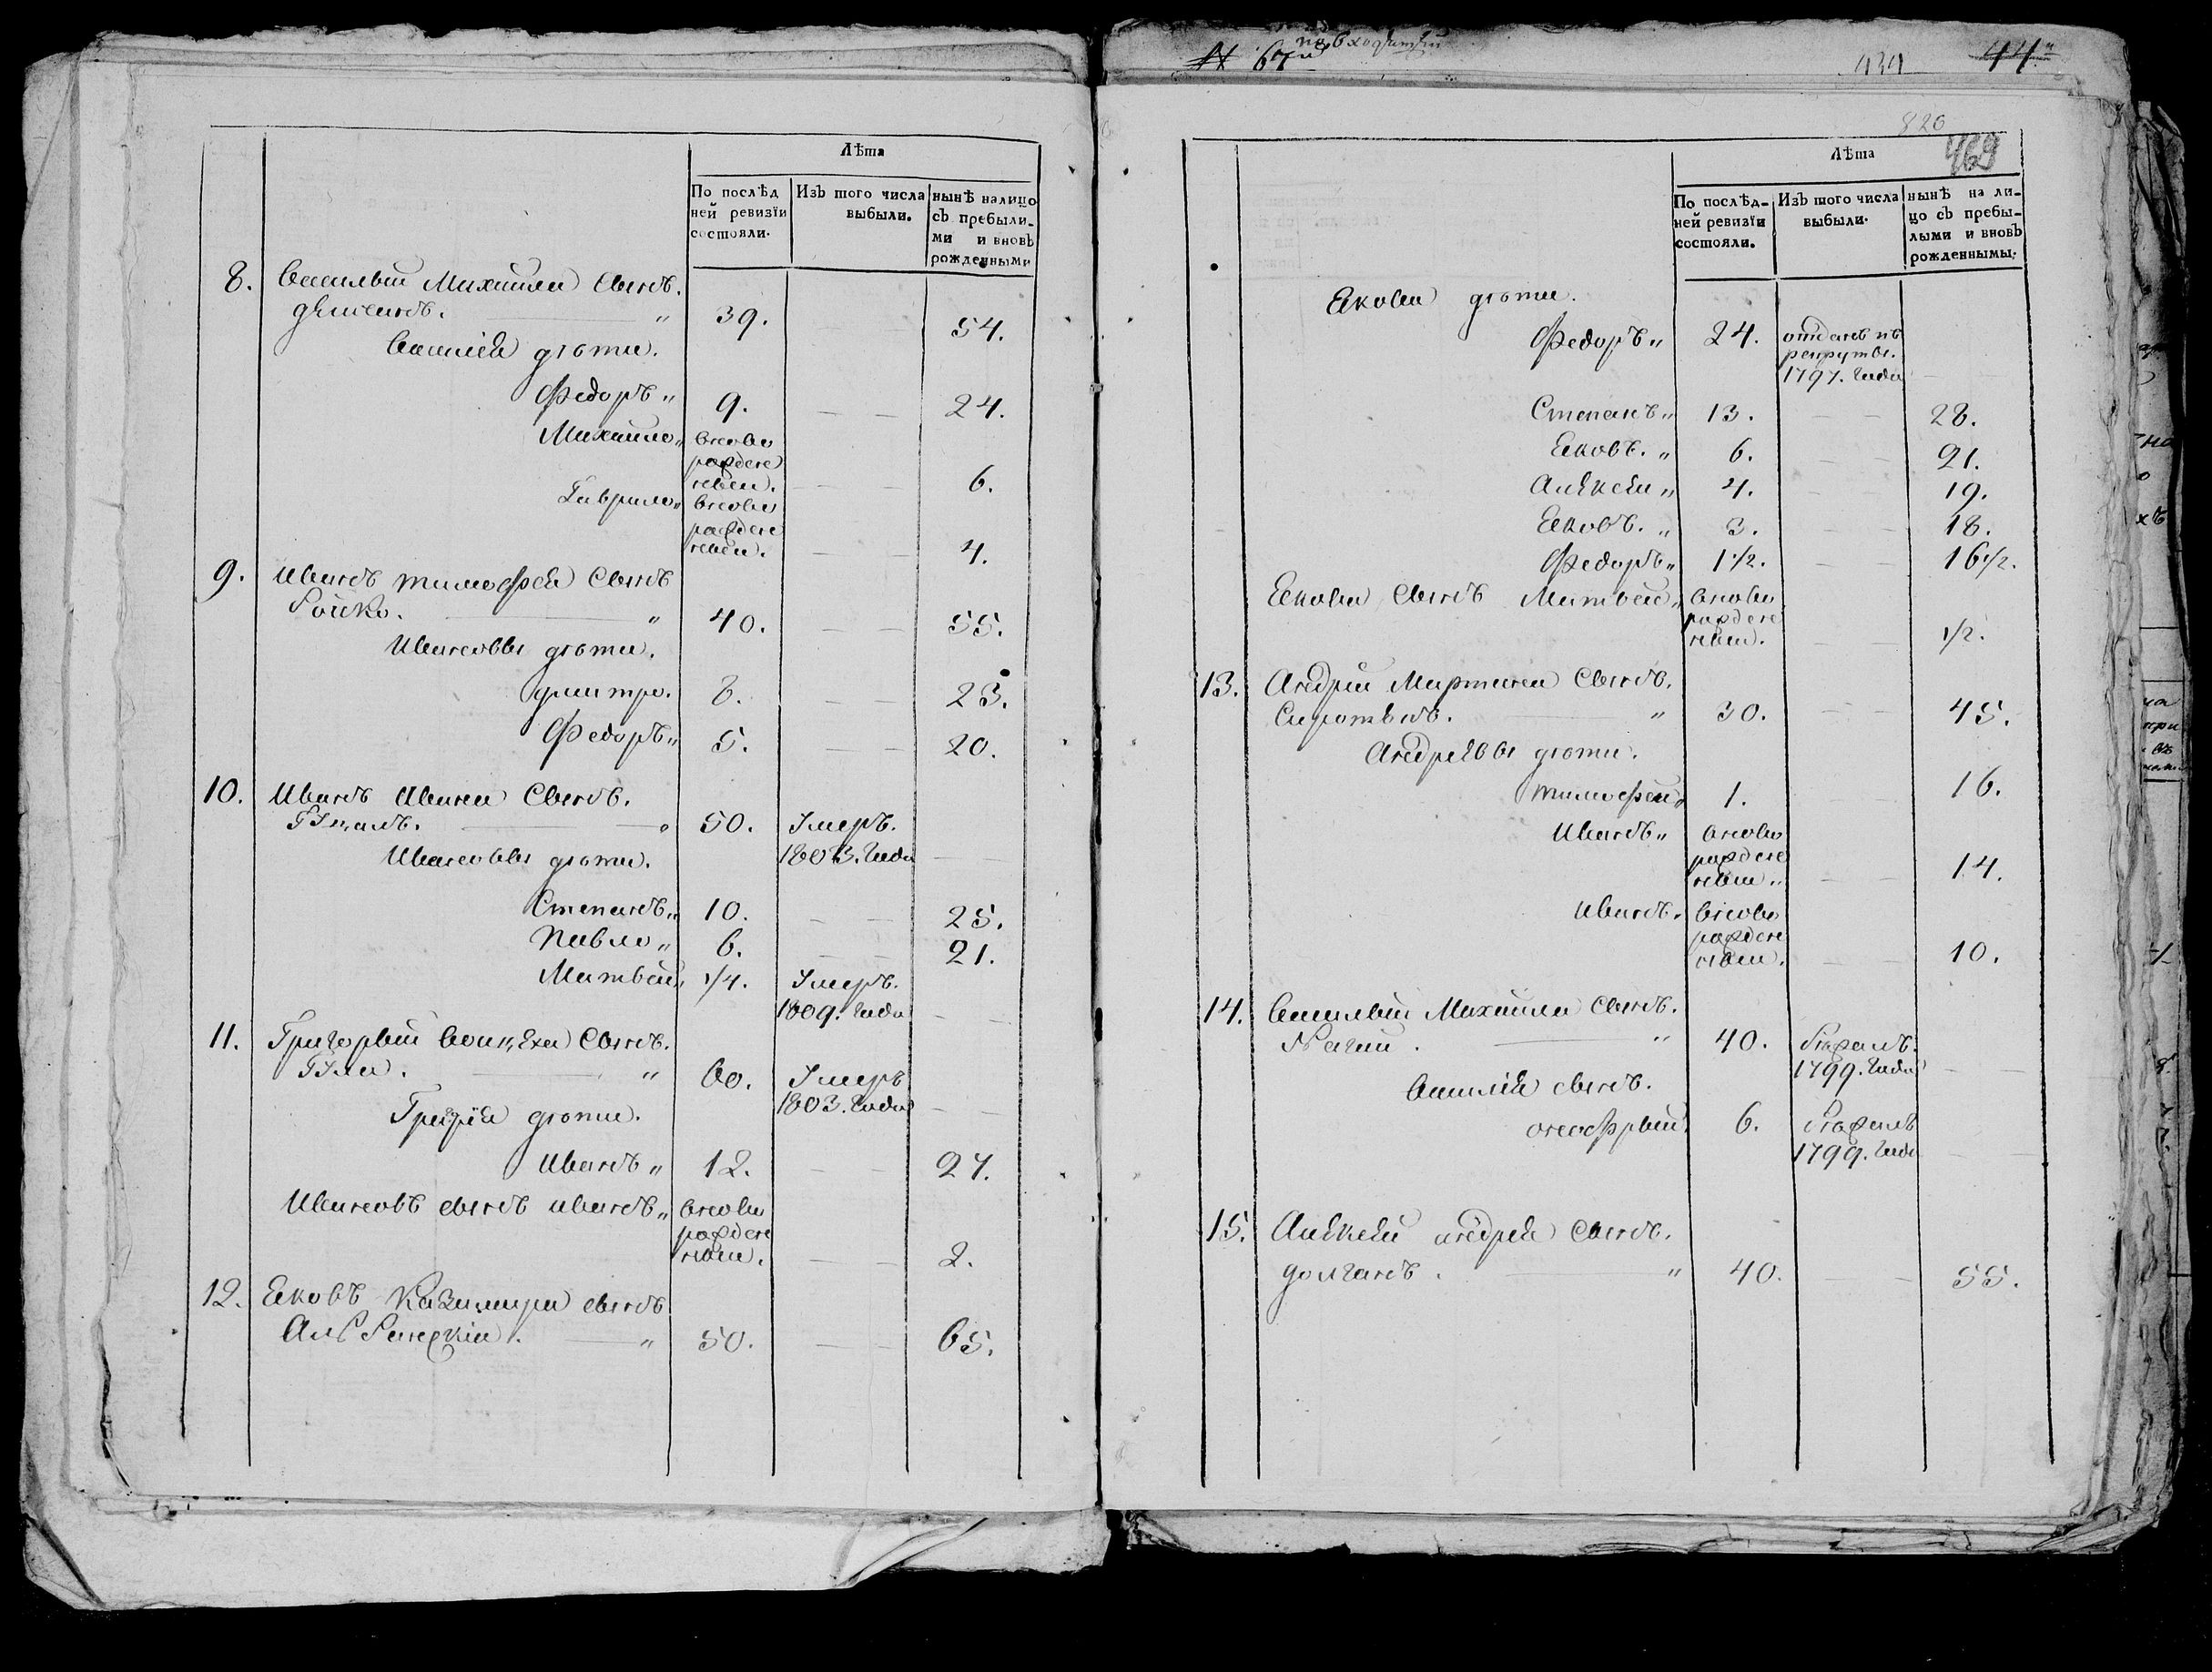 Лѣта
По послѣд
ней ревизїи
состояли.
Изъ того числа
выбыли.
нынѣ налицо
съ пребыли-
ми и вновь
рожденными
8. Василый Михайла Сынъ.
39. 54.
Василія дѣти.
Федоръ „ 9. 24.
Михайло „ вново
рожде
6.
Гаврило „ вново
рожде
4.
9. Иванъ тимофея Сынъ
40. 55.
Ивановы дѣти.
дмитро. 8. 23.
Федоръ „ 5. 20.
10. Иванъ Ивана Сынъ.
50. Умеръ.
Ивановы дѣти. 1803. года
Степанъ „ 10. 25.
Павло „ 6. 21.
Матвей „ 1/4. Умеръ.
1809. года
11. Григорый Сынъ.
60. Умеръ
1803. года
дѣти.
Иванъ „ 12. 27.
Ивановъ сынъ иванъ „ вново
рожде
2.
12. Яковъ Казимира сынъ
50. 65.
№ 67й
434 44
820
469
Лѣта
По послѣд-
ней ревизїи
состояли.
Изъ того числа
выбыли.
нынѣ на ли-
цо съ пребы-
лыми и вновь
рожденнымы.
Якова дѣти.
Федоръ „ 24. отданъ въ
рекруты.
1797. года
Степанъ „ 13. 28.
Яковъ. „ 6. 21.
Алѣксѣй „ 4. 19.
Яковъ. „ 3. 18.
Федоръ „ 1 1/2. 16 1/2.
Якова Сынъ Матвей „ вново
рожде
1/2.
13. Андрий Мартина Сынъ.
30. 45.
Андрѣвы дѣти.
тимофей „ 1. 16.
Иванъ „ вново
рожде
14.
иванъ „ вново
рожде
10.
14. Василый Михайла Сынъ.
Нагий. 40.
1799. года
Василія сынъ.
оноофрый. 6.
1799. года
15. Алѣксѣй андрея Сынъ.
долганъ. 40. 55.